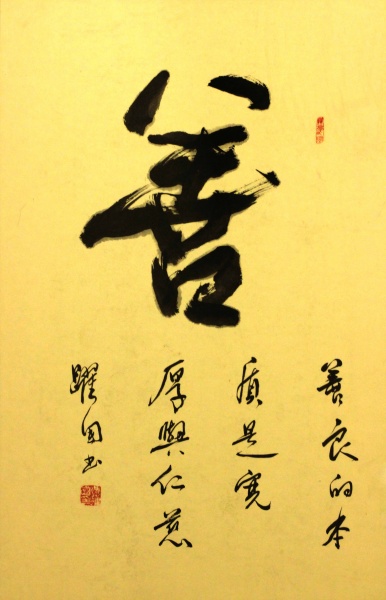 善
善良的本
质是宽
厚與仁慈
躍国书